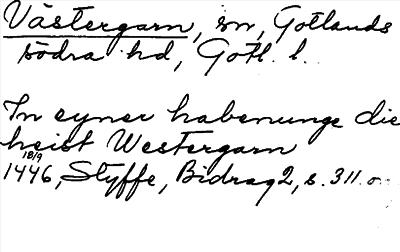 Västergarn, sn, Gotlands
södra hd, Gotl. l.
In eyner habenunge die
heist Westergarn
18/9
1446, Styffe, Bidrag 2, s. 311.o.